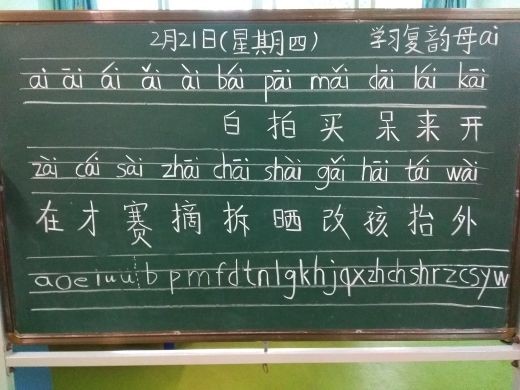 2月21日(星期四) 学习复韵母ai
ai āi ái ǎi ài bái pāi mǎi dāi lái kāi
白 拍 买 呆 来 开
zài cái sài zhāi chāi shài gǎi hāi tái wài
在 才 赛 摘 拆 晒 改 孩 抬 外
a o e i u ü b p m f d t n l g k h j q x zh ch sh r z c s y w